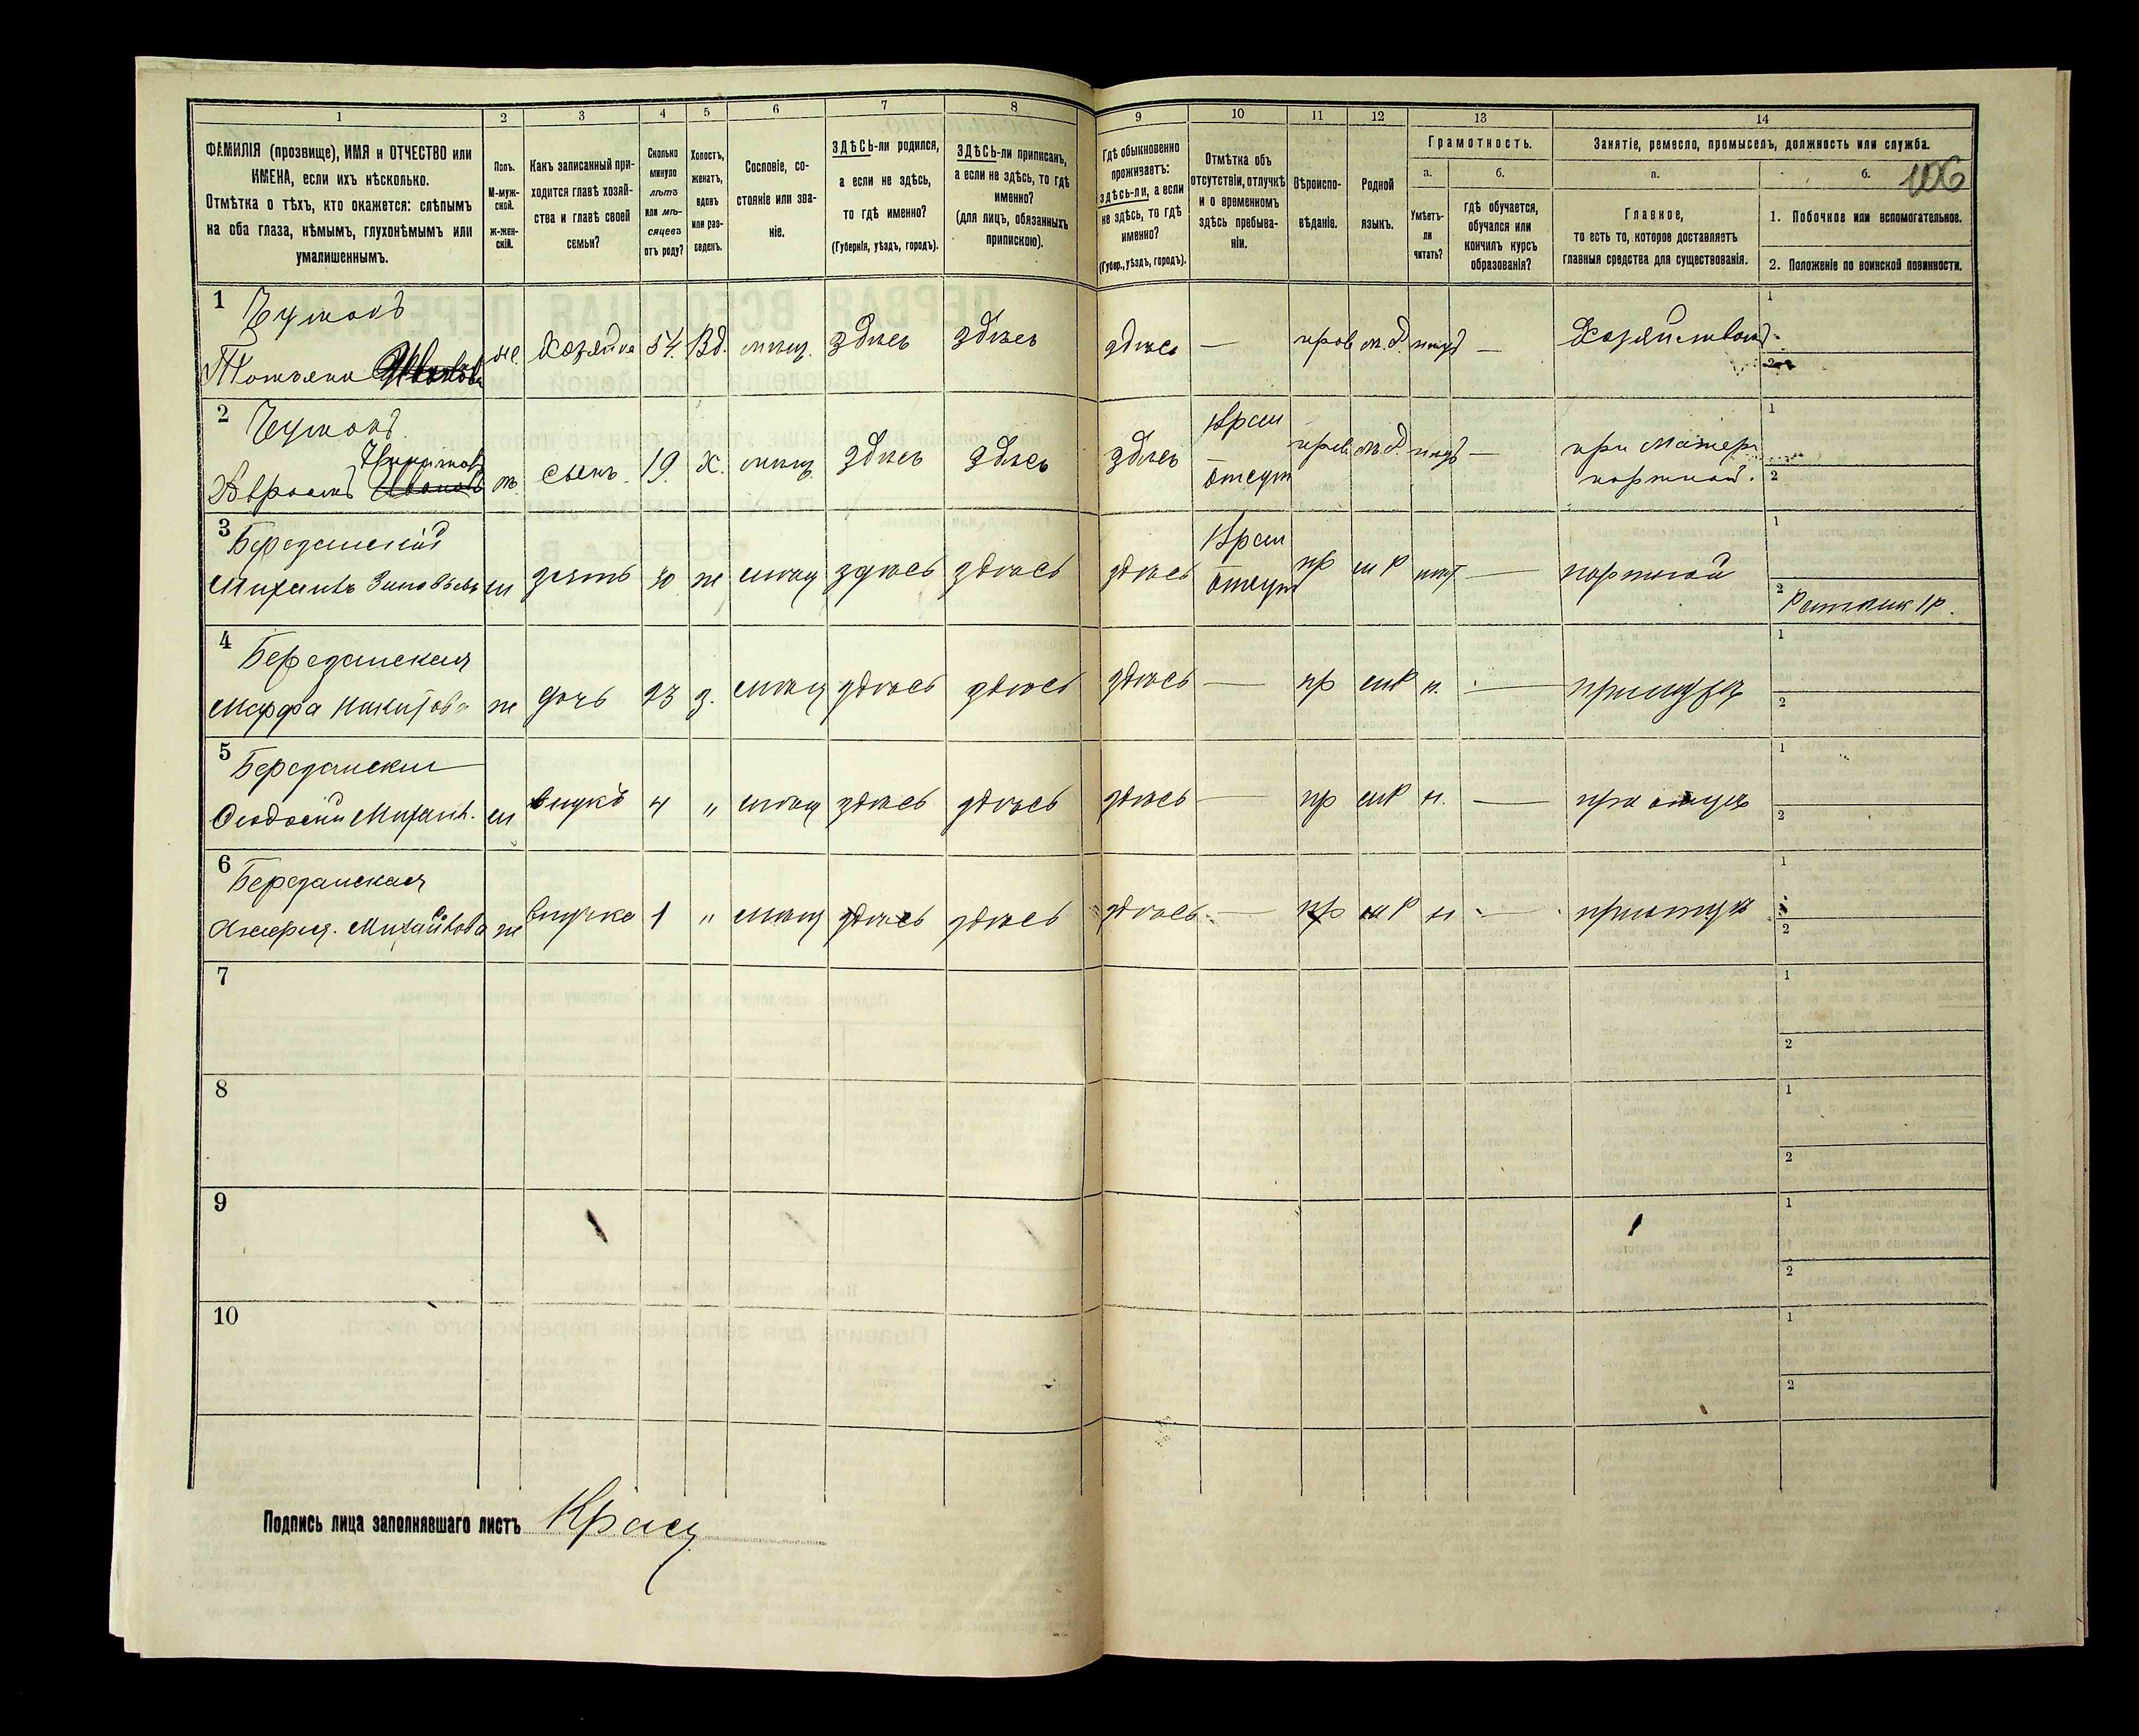 1 2 3 4 5 6 7 8 9 10 11 12 13 14
106
ФАМИЛІЯ (прозвище), ИМЯ и ОТЧЕСТВО или
ИМЕНА, если ихъ нѣсколько.
Отмѣтка о тѣхъ, кто окажется: слѣпымъ
на оба глаза, нѣмымъ, глухонѣмымъ или
умалишеннымъ.
Полъ.
М-муж-
ской.
Ж-жен-
скій.
Какъ записанный при-
ходится главѣ хозяй-
ства и главѣ своей
семьи?
Сколько
минуло
лѣтъ
или мѣ-
сяцевъ
отъ роду?
Холостъ,
женатъ,
вдовъ
или раз-
веденъ.
Сословіе, со-
стояніе или зва-
ніе.
ЗДѢСЬ-ли родился,
а если не здѣсь,
то гдѣ именно?
(Губернія, уѣздъ, городъ).
ЗДѢСЬ-ли приписанъ,
а если не здѣсь, то гдѣ
именно?
(для лицъ, обязанныхъ
припискою).
Гдѣ обыкновенно
проживаетъ:
здѣсь-ли, а если
не здѣсь, то гдѣ
именно?
(Губер., уѣздъ, городъ).
Отмѣтка объ
отсутствіи, отлучкѣ
и о временномъ
здѣсь пребыва-
ніи.
Вѣроиспо-
вѣданіе.
Родной
языкъ.
Грамотность.
а.
Умѣетъ-
ли
читать?
б.
гдѣ обучается,
обучался или
кончилъ курсъ
образованія?
Занятіе, ремесло, промыселъ, должность или служба.
а.
Главное,
то есть то, которое доставляетъ
главныя средства для существованія.
б.
1. Побочное или вспомогательное.
2. Положеніе по воинской повинности.
1
Татьяна
Хозяйка 54 Вд. мѣщ. здѣсь здѣсь здѣсь — прав м.Р. — 1 2
2
сынъ 19. Х. мѣщ здѣсь здѣсь здѣсь отсут прав м.Р. — при Матери портной. 1 2
3
Михаилъ м зять 30 ж мѣщ здѣсь здѣсь здѣсь отсут пр м Р — портной 1 2 Ратник 1 р.
4
Марфа Никитова ж дочь 23 з. мѣщ здѣсь здѣсь здѣсь — пр м Р н. — при мужѣ 1 2
5
Феодосій Михаил. м внукъ 4 „ мѣщ здѣсь здѣсь здѣсь — пр м Р н. — при отцѣ 1 2
6
Михайлова ж внучка 1 „ мѣщ здѣсь здѣсь здѣсь — пр м Р н — при отцѣ 1 2
7 1 2
8 1 2
9 1 2
10 1 2
Подпись лица заполнявшаго листъ